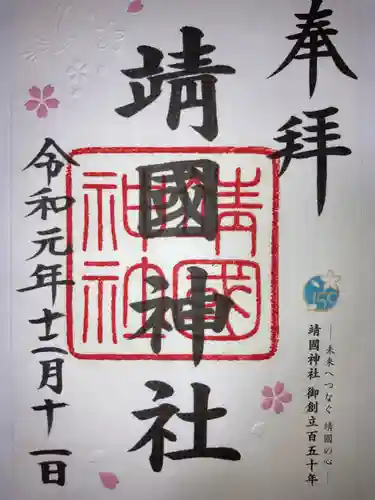 奉拝
靖國神社
令和元年十二月十一日
靖國神社
150
―未来へつなぐ 靖國の心―
靖國神社 御創立百五十年